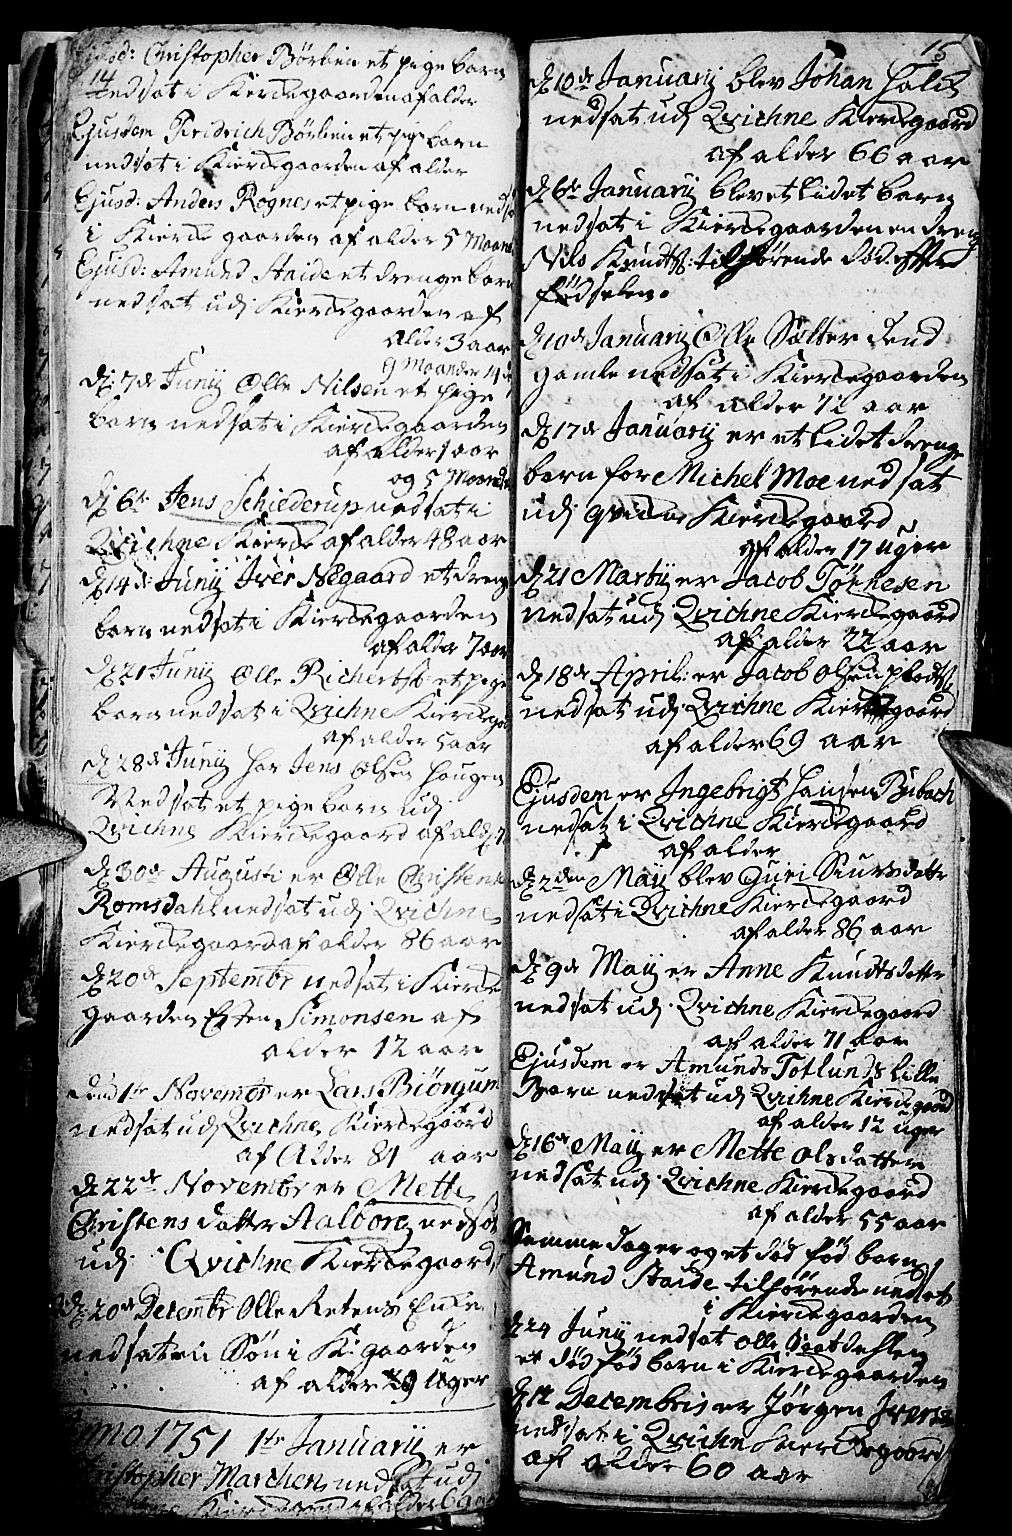 Ejusd: Christopher Börlien et pige barn
14
nedsat i Kierdegaarden af alder
Ejusdem Fridrich Börlien et pige barn
nedsat i Kierdegaarden af alder
Ejusd: Anders Rognes et pige barn nedsat
i Kierde gaarden af alder 5 Maaned
Ejusd: Amund Staide et drenge barn
nedsat udj Kierdegaarden af
alder 3 aar
9 Maander 14
dj 7de Junij Olle Nilsen et pige
barn nedsat i Kierdegaarden
af alder 1 aar
og 5 Maaneder
dj 6te Jens Schiederup nedsat i
Qvichne Kierde af alder 48 aar
dj 14de Junij Iver Negaard et drenge
barn nedsat i Kierdegaarden
af alder 7 aar
dj 21 Junij Olle Richerts: et pige
barn nedsat i Qvichne Kierdegaard
af alder 5 aar
dj 28de Junij har Jens Olsen Haugen
Nedsat et pige barn udj
Qvichne Kierdegaard af ald:
dj 30de Augusti er Olle Christens
Romsdahl nedsat udj Qvichne
Kierdegaard af alder 86 aar
dj 20de Septembr nedsat i Kierde
gaarden Esten Simonsen af
alder 12 aar
dend 1te Novembr er Lars Biörgum
nedsat udj Qvichne Kierdegaard
af Alder 81 aar
dj 22de Novembr er Mette
Christens datter Aalborg nedsat
udj Qvichne Kierdegaard
dj 20de Decembr Olle Retens Enke
nedsat en Sön i K: gaarden
af alder 29 Uger
Anno 1751 1te Januarij er
Christopher Marchen nedsat udj
Kierdegaard af alder 6
15
dj 10de Januarij blev Johan
nedsat udj Qvichne Kierdegaard
af alder 66 aar
dj 6te Januarij blev et lidet barn
nedsat i Kierdegaarden en dreng
Nils Knudts: tilhørende död efter
födselen.
dj 10de Januarij Olle Sætter dend
gamle nedsat i Kierdegaarden
af alder 72 aar
dj 17de Januarij er et lidet drenge
barn for Michel Moe nedsat
udj qvichne Kierdegaard
af alder 17 uger
dj 21 Martij er Jacob Tönnesen
nedsat udj Qvichne Kierdegaard
af alder 22 aar
dj 18de April: er Jacob Olsen
nedsat udj Qvichne Kierdegaard
af alder 69 aar
Ejusdem er Ingebrigt Hansen Bubach
nedsat i Qvichne Kierdegaard
af alder
dj 2den Maij blev Guri Siurs datter
nedsat i Qvichne Kierdegaard
af alder 86 aar
dj 9de Maij er Anne Knudts datter
nedsat udj Qvichne Kierdegaard
af alder 71 aar
Ejusdem er Amunds Totlunds lille
Barn nedsat udj Qvichne Kierdegaard
af alder 12 uger
dj 16de Maij er Mette Olsdatter
nedsat udj Qvichne Kierdegaard
af alder 55 aar
Samme dag er og et død fød barn
Amund Staide tilhørende nedsat
i Kierdegaarden
dj 24 Junij nedsat Olle
et död föd barn i Kierdegaarden
dj Decembris er Jörgen Iversen
nedsat i Qvichne Kierdegaard
af alder 60 aar